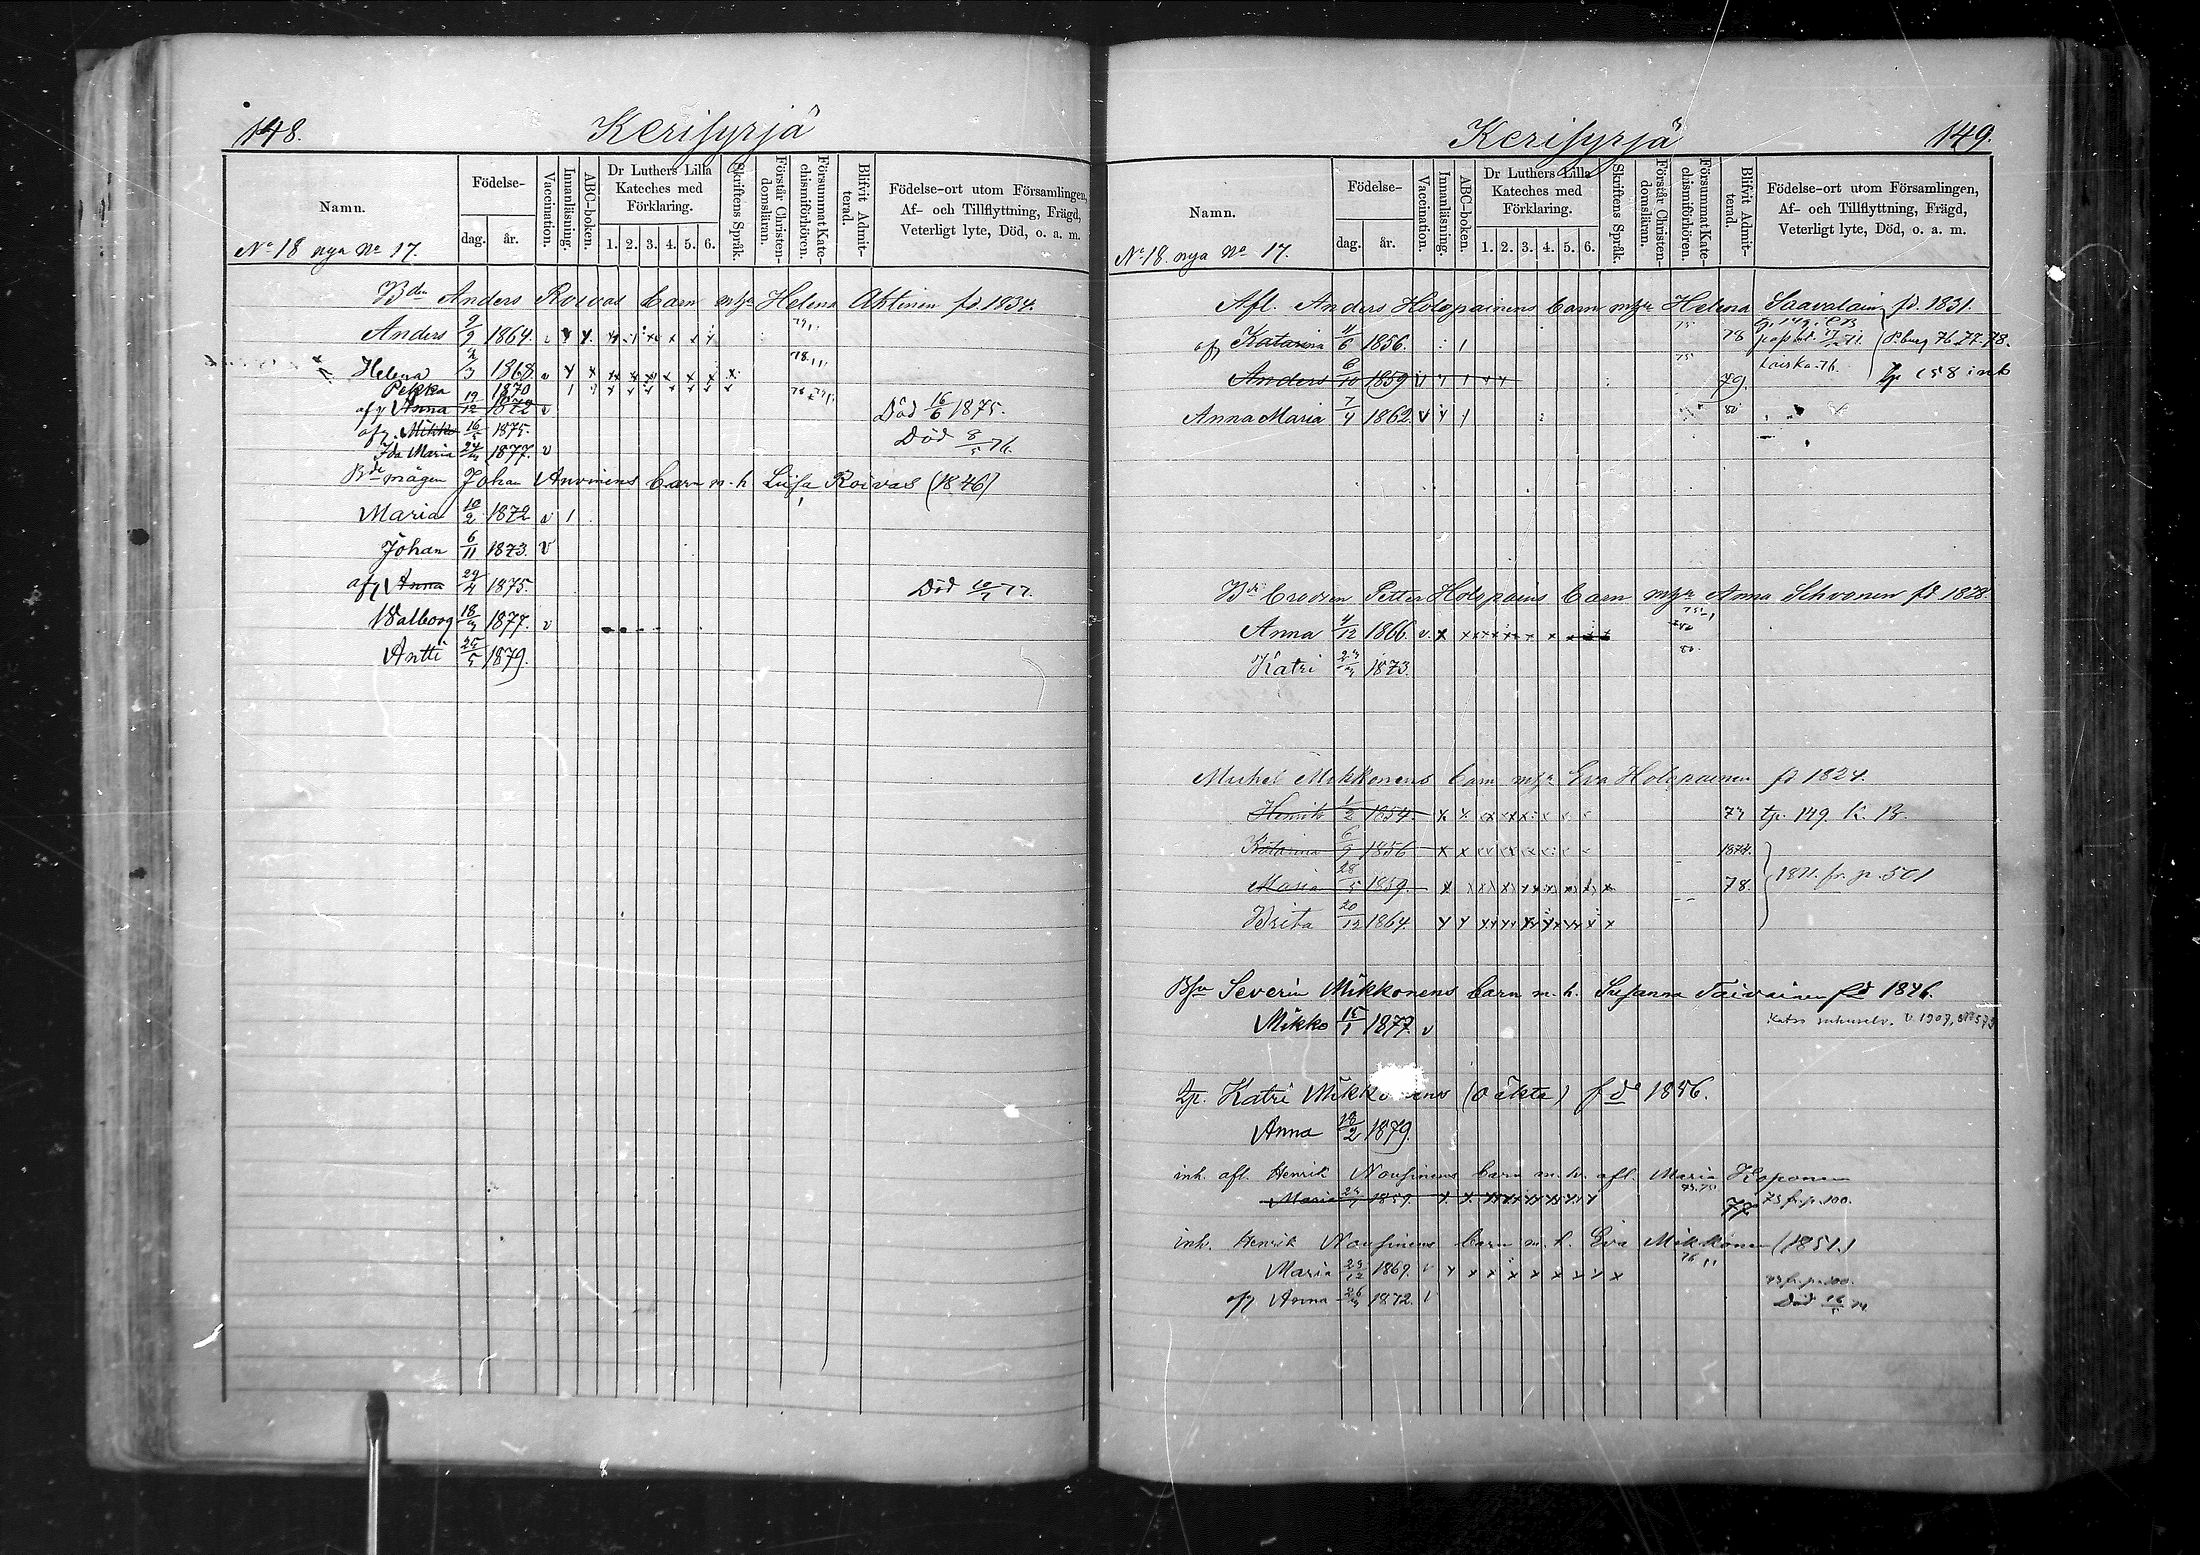 148.
Kerisyrjä
Namn.
Födelse-
dag.
år.
Vaccination.
Innanläsning.
ABC-boken.
Dr Luthers Lilla
Kateches med
Förklaring.
1. 2. 3. 4. 5. 6.
Skriftens Språk.
Förstår Christen-
domsläran.
Försummat Kate-
chismiförhören.
Blifvit Admit-
terad.
Födelse-ort utom Församlingen,
Af- och Tillflyttning, Frägd,
Veterligt lyte, Död, o. a. m.
No 18 nya No 17.
Bdn Anders Roivas barn m hu Helena Ahtinen fd 1834.
Anders 9/9 1864. 79
Helena 1868. 78
Pekka 1870
afg Anna 19/12 1872 v Död 16/6 1875.
afg. Mikko 16/5 1875. Död 8/5 76.
Ida Maria 1877. v
Bde mågen Johan Anvinens barn m. h. Luisa Roivas (1846)
Maria 10/2 1872 v 1
Johan 6/11 1873. v
afg Anna 29/4 1875. Död 77.
Walborg 18/3 1877. v
Antti 25/5 1879.
149.
Kerisyrjä
Namn.
Födelse-
dag.
år.
Vaccination.
Innanläsning.
ABC-boken.
Dr Luthers Lilla
Kateches med
Förklaring.
1. 2. 3. 4. 5. 6.
Skriftens Språk.
Förstår Christen-
domsläran.
Försummat Kate-
chismiförhören.
Blifvit Admit-
terad.
Födelse-ort utom Församlingen,
Af- och Tillflyttning, Frägd,
Veterligt lyte, Död, o. a. m.
No 18. nya No 17.
Afl. Anders Holopainens barn m hu Helena Saavalain fd 1831.
afg Katarina 4/6 1856. 75 78 P.burg 76.77.78.
Anders 6/10 1859 v 75 79.
Anna Maria 7/4 1862 v 80
Bde brodren Petter Holopains barn m hu Anna Schvonen fd 1828
Anna 4/12 1866. v. x
Katri 1873. 80.
Michel Mikkonens barn m hu Eva Holopainen fd 1824.
Henrik 1/2 1854. 73 tp. 149. K. B.
Katarina 6/9 1856 1874.
Maria 28/5 1859. 78. 1871. fr. p. 501
Brita 20/12 1864.
Severin Mikkonens barn m. h. Susanna Taivainen fd 1846.
Mikko 15/1 1877. v
Katri Mikkonens (oäkta) fd 1856.
Anna 1879.
inh. afl. Henrik Nousinens barn m. h. afl. Maria Koponen
Maria 1859. 73 fr. p. 100.
inh. Henrik Nousinens barn m. h. Eva Mikkonen (1851.)
Maria 23/12 1869. v 76 73 fr. p. 100.
afg Anna 1872. Död